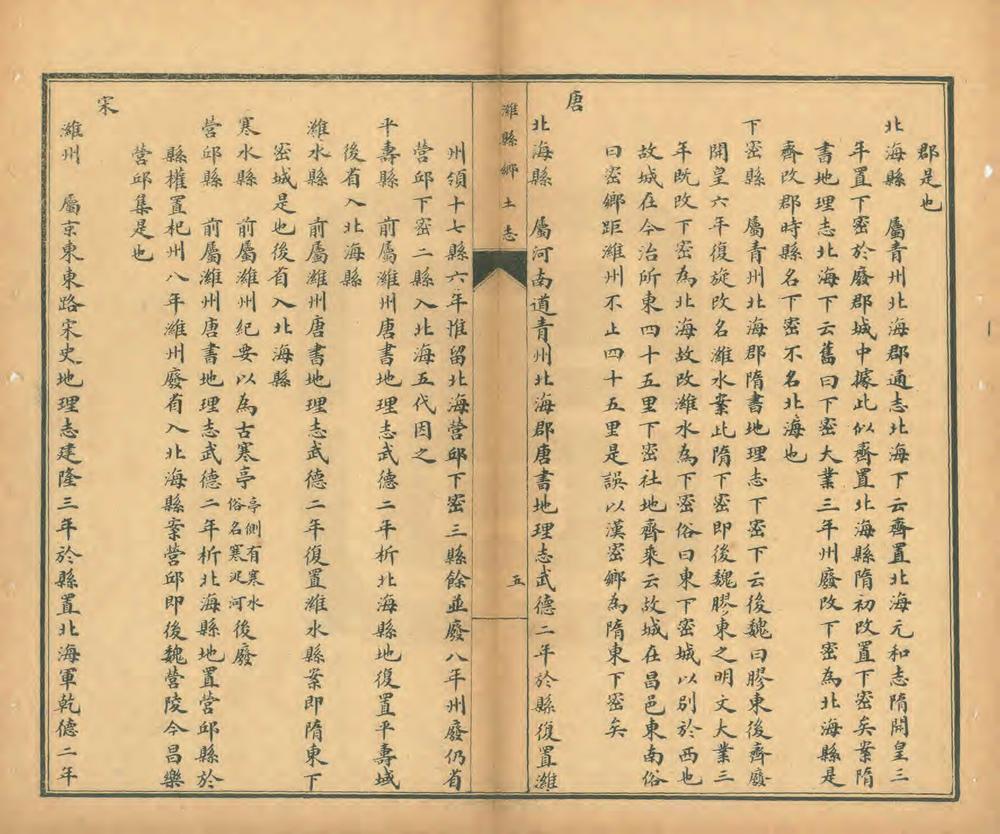 郡是也
北海縣　屬青州北海郡通志北海下云齊置北海元和志隋開皇三
年置下密於廢郡城中據此似齊置北海縣隋初改置下密矣案隋
書地理志北海下云舊曰下密大業三年州廢改下密為北海縣是
齊改郡時縣名下密不名北海也
下密縣　屬青州北海郡隋書地理志下密下云後魏曰膠東後齊廢
開皇六年復旋改名濰水案此隋下密即後魏膠東之明文大業三
年旣改下密為北海故改濰水為下密俗曰東下密城以別於西也
故城在今治所東四十五里下密社地齊乘云故城在昌邑東南俗
曰密鄉距濰州不止四十五里是誤以漢密鄉為隋東下密矣
唐
北海縣　屬河南道青州北海郡唐書地理志武德二年於縣復置濰
濰縣鄉土志
五
州領十七縣六年惟留北海營邱下密三縣餘並廢八年州廢仍省
營邱下密二縣入北海五代因之
平壽縣　前屬濰州唐書地理志武德二年析北海縣地復置平壽城
後省入北海縣
濰水縣　前屬濰州唐書地理志武德二年復置濰水縣案即隋東下
密城是也後省入北海縣
寒水縣　前屬濰州紀要以為古寒亭亭側有寒水俗名寒泥河後廢
營邱縣　前屬濰州唐書地理志武德二年析北海縣地置營邱縣於
縣權置杞州八年濰州廢省入北海縣案營邱即後魏營陵今昌樂
營邱集是也
宋
濰州　屬京東東路宋史地理志建隆三年於縣置北海軍乾德二年